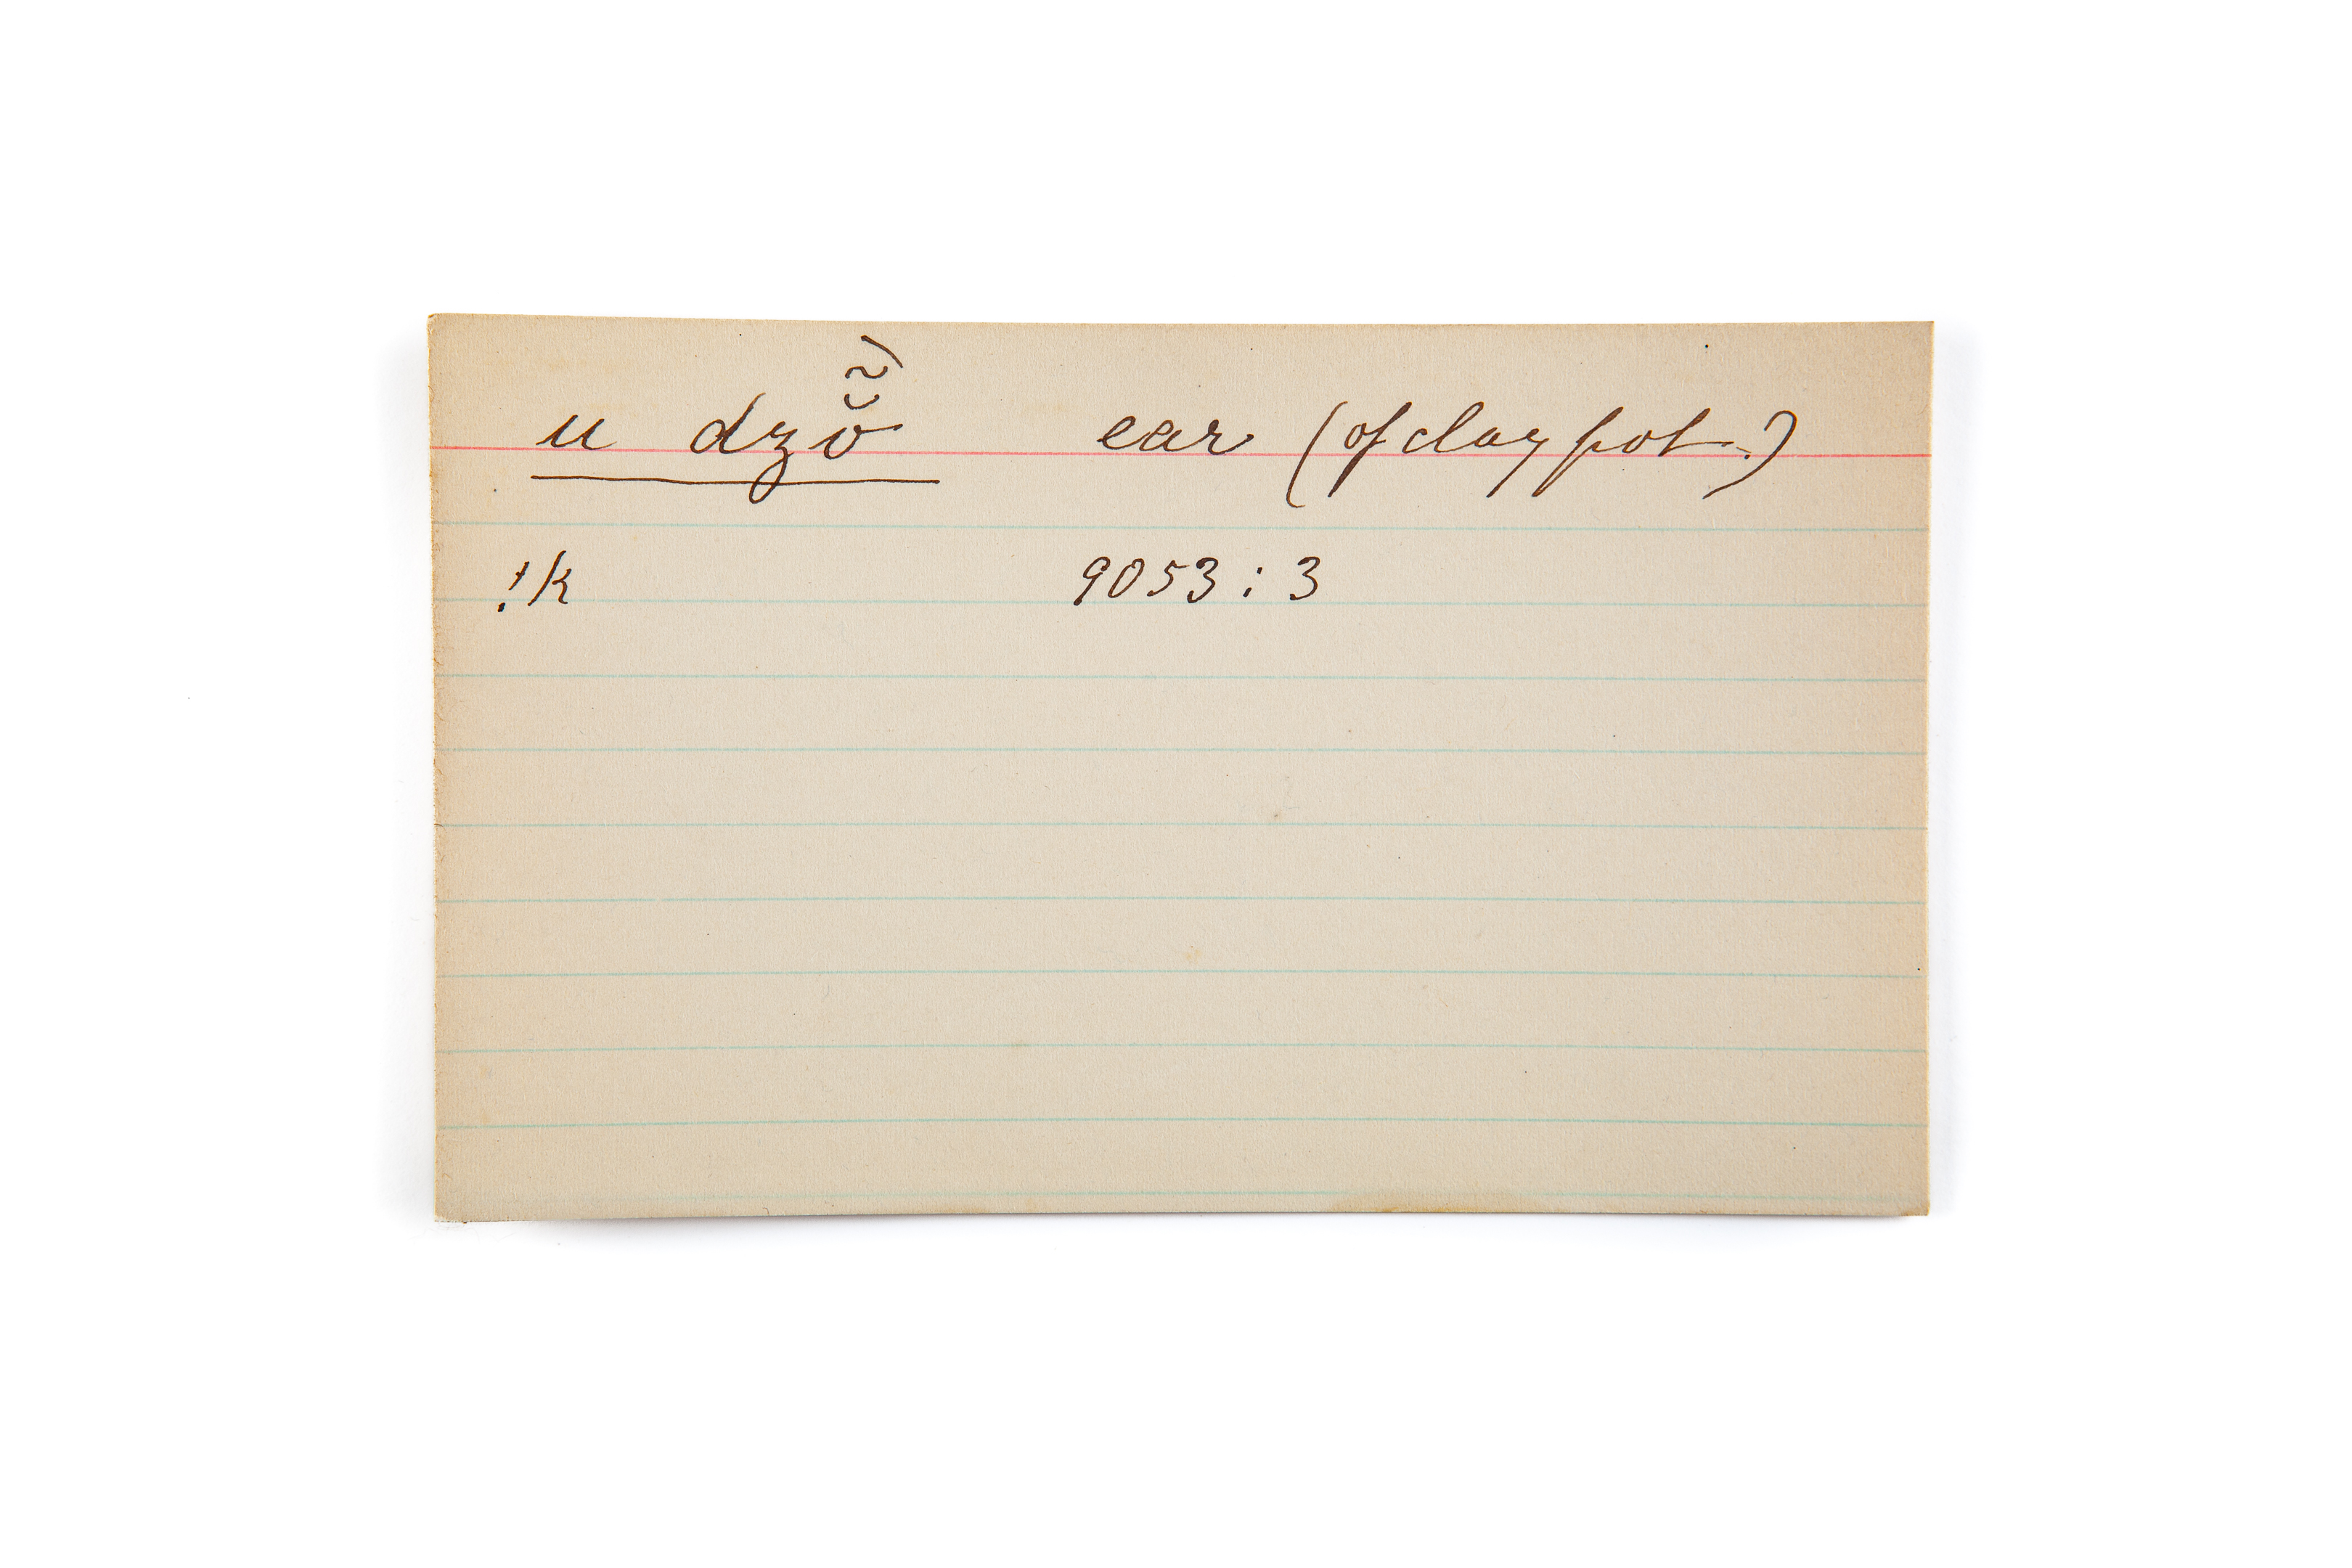 u dzŏ̃) ear (of clay pot.)
!k 9053 : 3